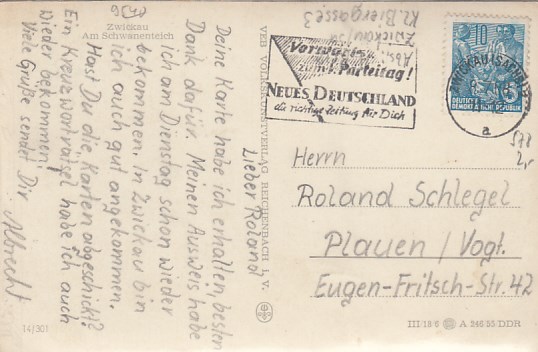 9540
Zwickau
Am Schwanenteich
Lieber Roland
Deine Karte habe ich erhalten, besten
Dank dafür. Meinen Ausweis habe
ich am Dienstag schon wieder
bekommen. In Zwickau bin
ich auch gut angekommen.
Hast Du die Karten abgeschickt?
Ein Kreuzworträtsel habe ich auch
wieder bekommen.
Viele Grüße sendet Dir
Albrecht
14/301
VEB VOLKSKUNSTVERLAG REICHENBACH I. V.
Abs.
Zwickau/Sa
Kl. Biergasse 3
Vorwärts
zum Parteitag!
NEUES DEUTSCHLAND
die richtige Zeitung für Dich
ZWICKAU (SACHS)
a
10
DEUTSCHE
DEMOKRATISCHE REPUBLIK
578
2,-
Herrn
Roland Schlegel
Plauen / Vogt.
Eugen-Fritsch-Str. 42
III/18/6 A 246/55/DDR